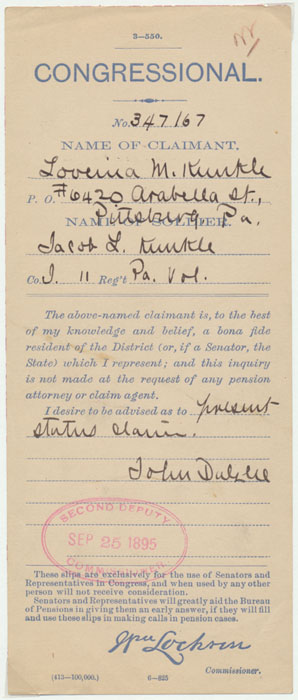 3—550.
CONGRESSIONAL.
No. 347167
NAME OF CLAIMANT.
M. Kunkle
P. O. #6420 Arabella St.,
Pittsburg, Pa.
NAME OF SOLDIER.
Jacob L. Kunkle
Co. I. 11 Reg't Pa. Vol.
The above-named claimant is, to the best
of my knowledge and belief, a bona fide
resident of the District (or, if a Senator, the
State) which I represent; and this inquiry
is not made at the request of any pension
attorney or claim agent.
I desire to be advised as to present
status claim.
John Dalzell
SECOND DEPUTY
SEP 25 1895
COMMISSIONER
These slips are exclusively for the use of Senators and
Representatives in Congress, and when used by any other
person will not receive consideration.
Senators and Representatives will greatly aid the Bureau
of Pensions in giving them an early answer, if they will fill
and use these slips in making calls in pension cases.
Wm Lochren
Commissioner.
(413—100,000.) 6—825